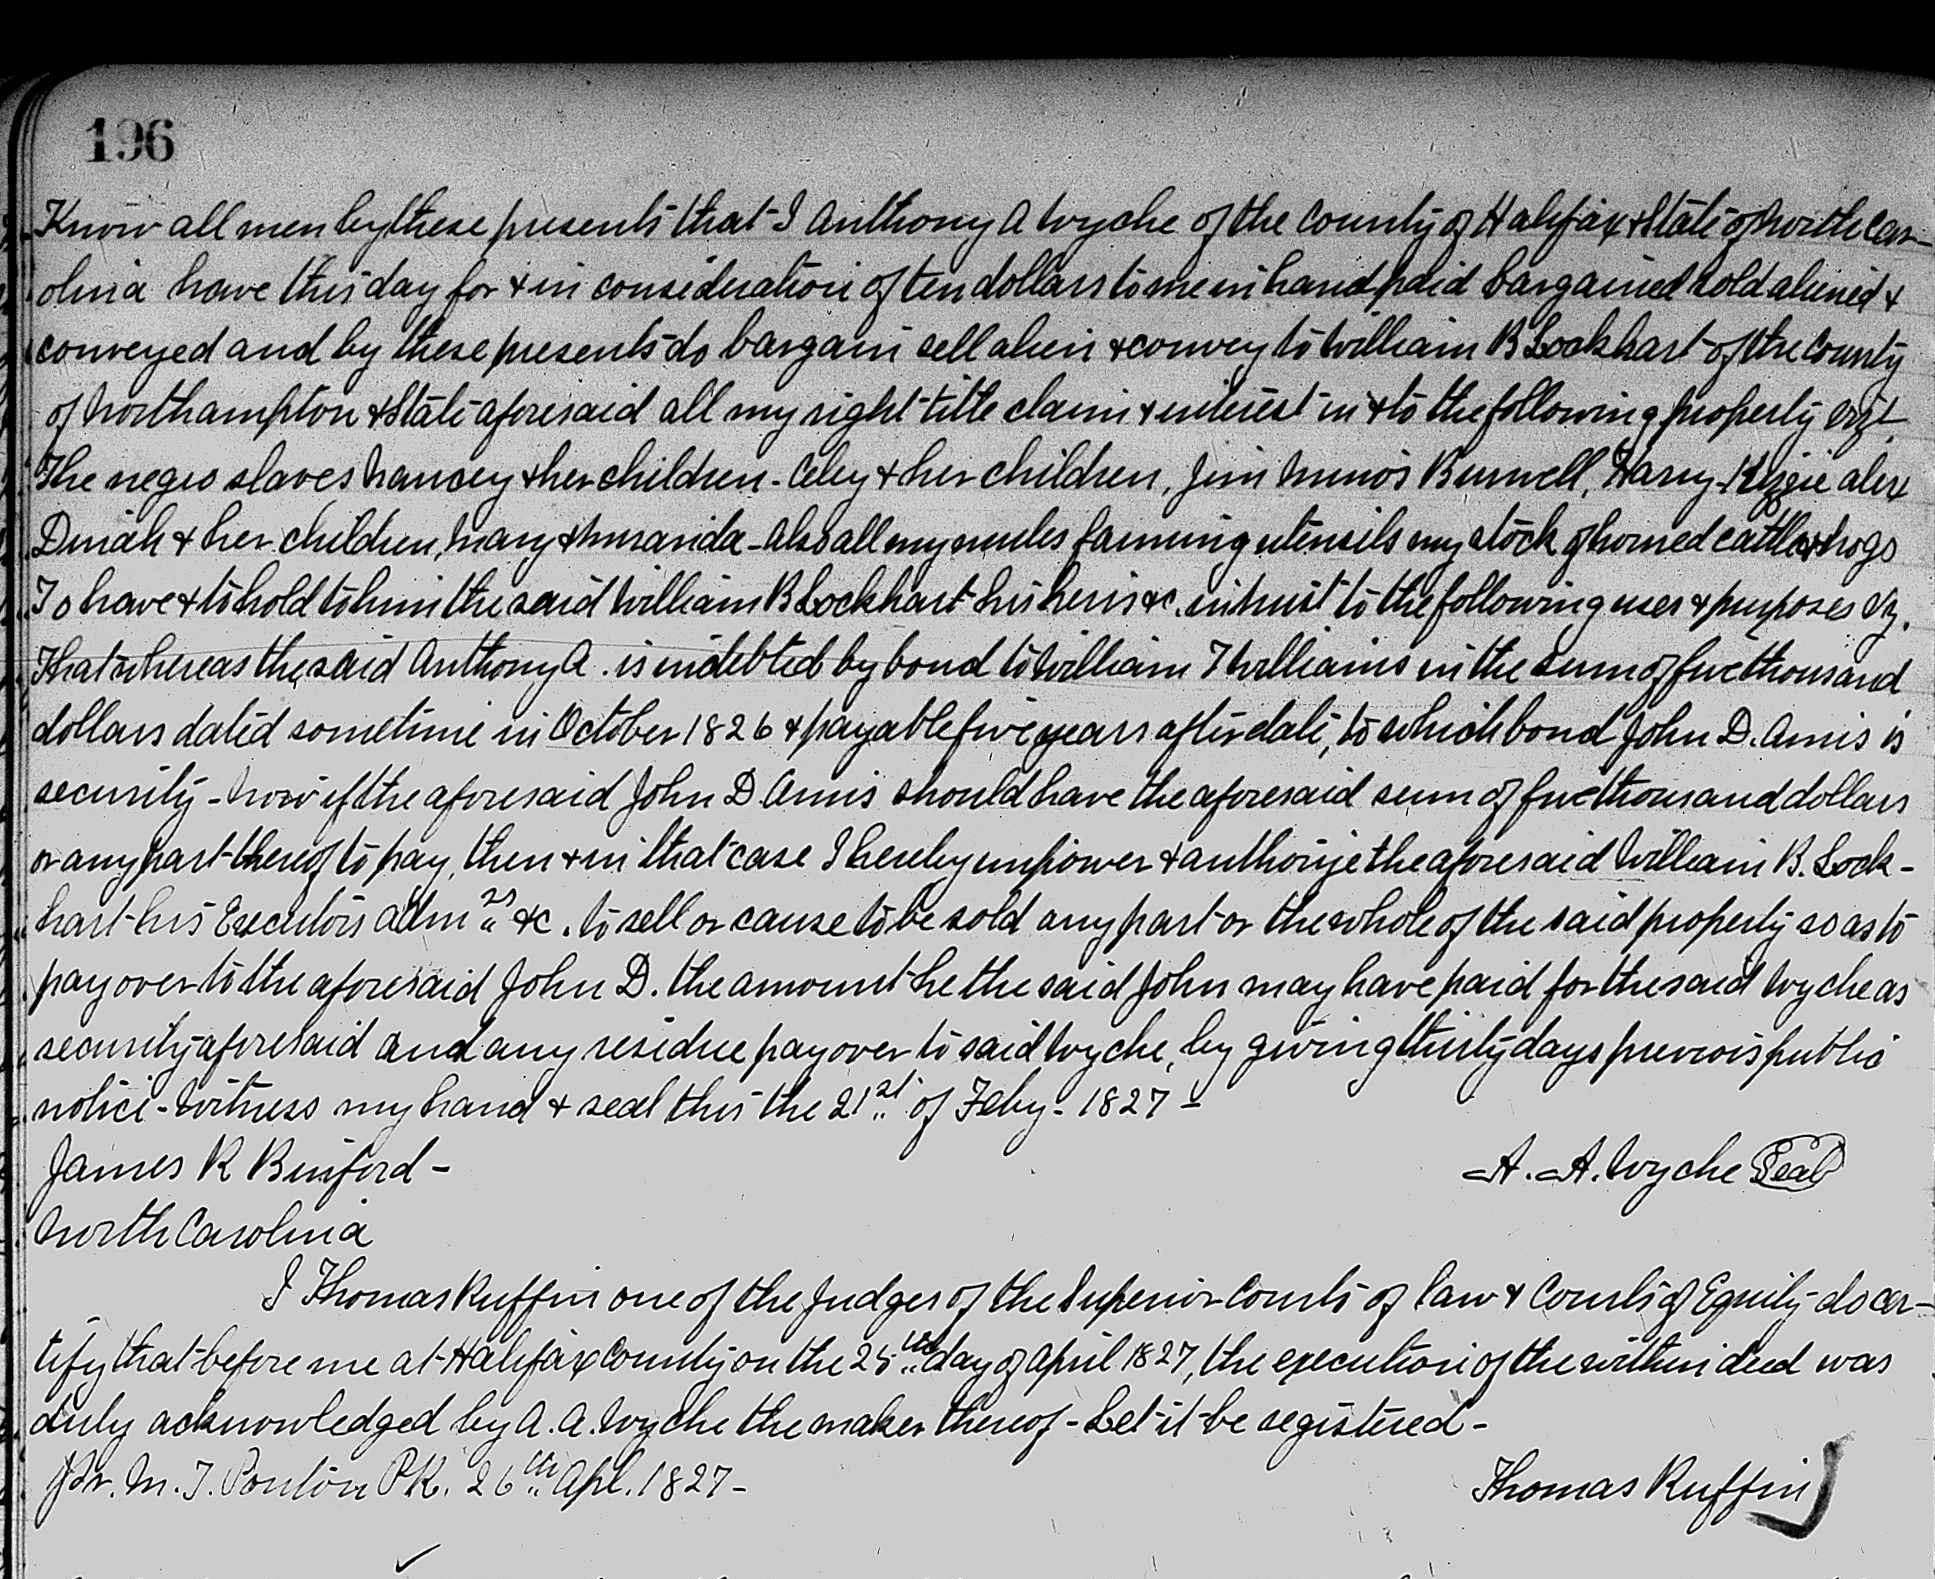 196
Know all men by these presents that I Anthony A Wyche of the County of Halifax & State of North Car-
olina have this day for & in consideration of ten dollars to me in hand paid bargained sold aliened &
conveyed and by these presents do bargain sell alien & convey to William B Lockhart of the County
of Northampton & State aforesaid all my right title claim & interest in & to the following property vizt.
The negro slaves Nancey & her children - Celey & her children, Jim Burwell, Harry Kizzie alex
Dinah & her children, Mary & Muranda - Also all my mules farming utensils my stock of horned cattle & hogs
To have & to hold to him the said William B Lockhart his heirs &c. in trust to the following uses & purposes viz.
That whereas the said Anthony A. is indebted by bond to William T Williams in the sum of five thousand
dollars dated sometime in October 1826 & payable five years after date, to which bond John D. Amis is
security - Now if the aforesaid John D Amis should have the aforesaid sum of five thousand dollars
or any part thereof to pay, then & in that case I hereby impower & authorize the aforesaid William B. Lock-
hart his Executors adm rs &c. to sell or cause to be sold any part or the whole of the said property so as to
pay over to the aforesaid John D. the amount he the said John may have paid for the said Wyche as
security aforesaid and any residue pay over to said Wyche, by giving thirty days previous public
notice - Witness my hand & seal this the 21st of Feby - 1827 -
James R Binford - A. A. Wyche Seal
North Carolina
I Thomas Ruffin one of the Judges of the Superior Courts of law & Courts of Equity do cer-
tify that before me at Halifax County on the 25th day of April 1827, the execution of the within deed was
duly acknowledged by A. A. Wyche the maker thereof - Let it be registered -
Pr. M. T. Ponton PR. 26th Apl. 1827 - Thomas Ruffin